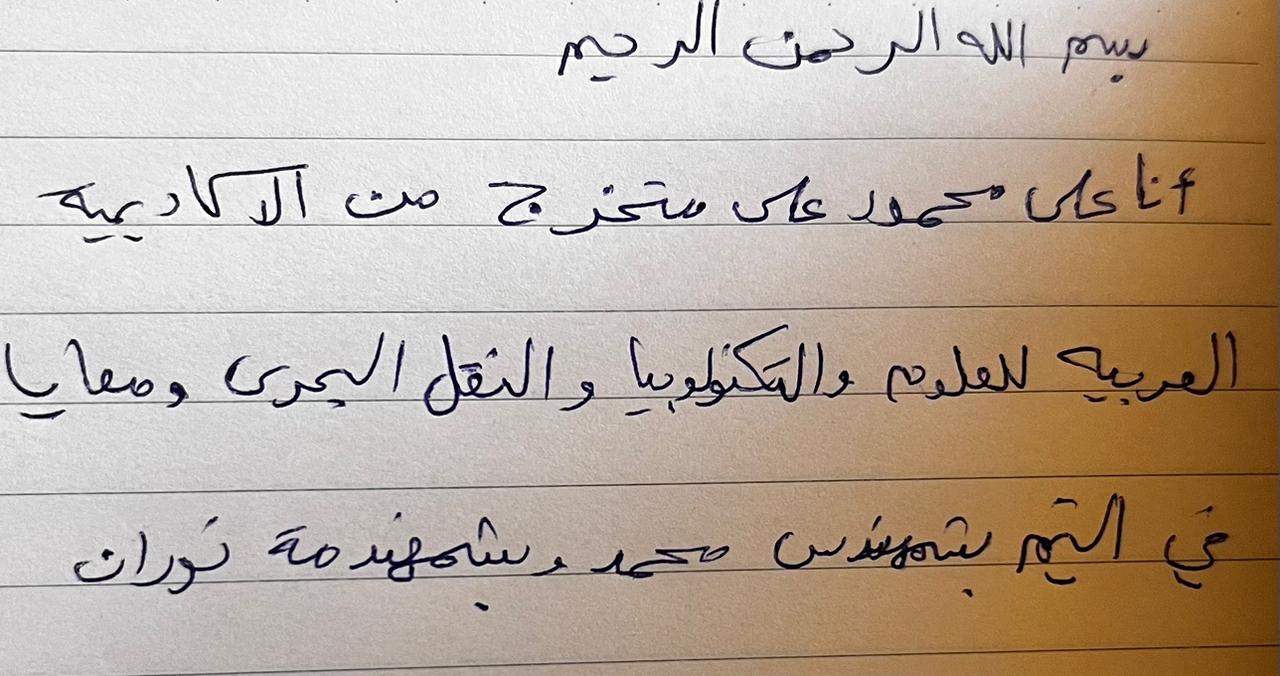 بسم الله الرحمن الرحيم
أنا على محمود على متخرج من الاكاديميه
العربيه للعلوم والتكنولوجيا والنقل البحرى ومعايا
في التيم بشمهندس محمد وبشمهندسة نوران